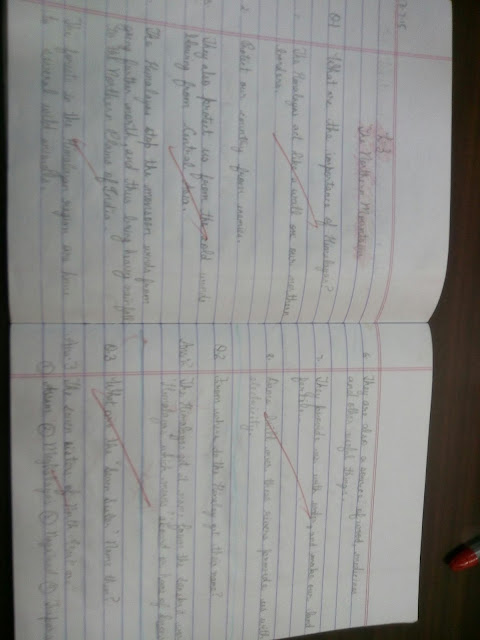 L-3
The Northern Mountains
Q1 What are the importance of Himalayas?
The Himalayas act like a wall on our northern
borders.
2. Protect our country from enemies.
They also protect us from the cold winds
blowing from Central Asia.
The Himalayas stop the monsoon winds from
going further north and thus bring heavy rainfall
to the Northern Plains of India.
The forests in the Himalayan region are home
to several wild animals.
6. They are also a source of wood, medicines
and other useful things.
7. They provide us with water and makes our land
fertile.
8. Dams built over these rivers provide us with
electricity.
Q2 From where do the Himalayas get this name?
Ans: The Himalayas get it name from the Sanskrit word
'Himalaya' which means abode or home of snow
Q3 Who are the 'Seven Sisters'? Name them?
Ans: The seven sisters of North East are
① Assam ② Meghalaya ③ Nagaland ④ Manipur